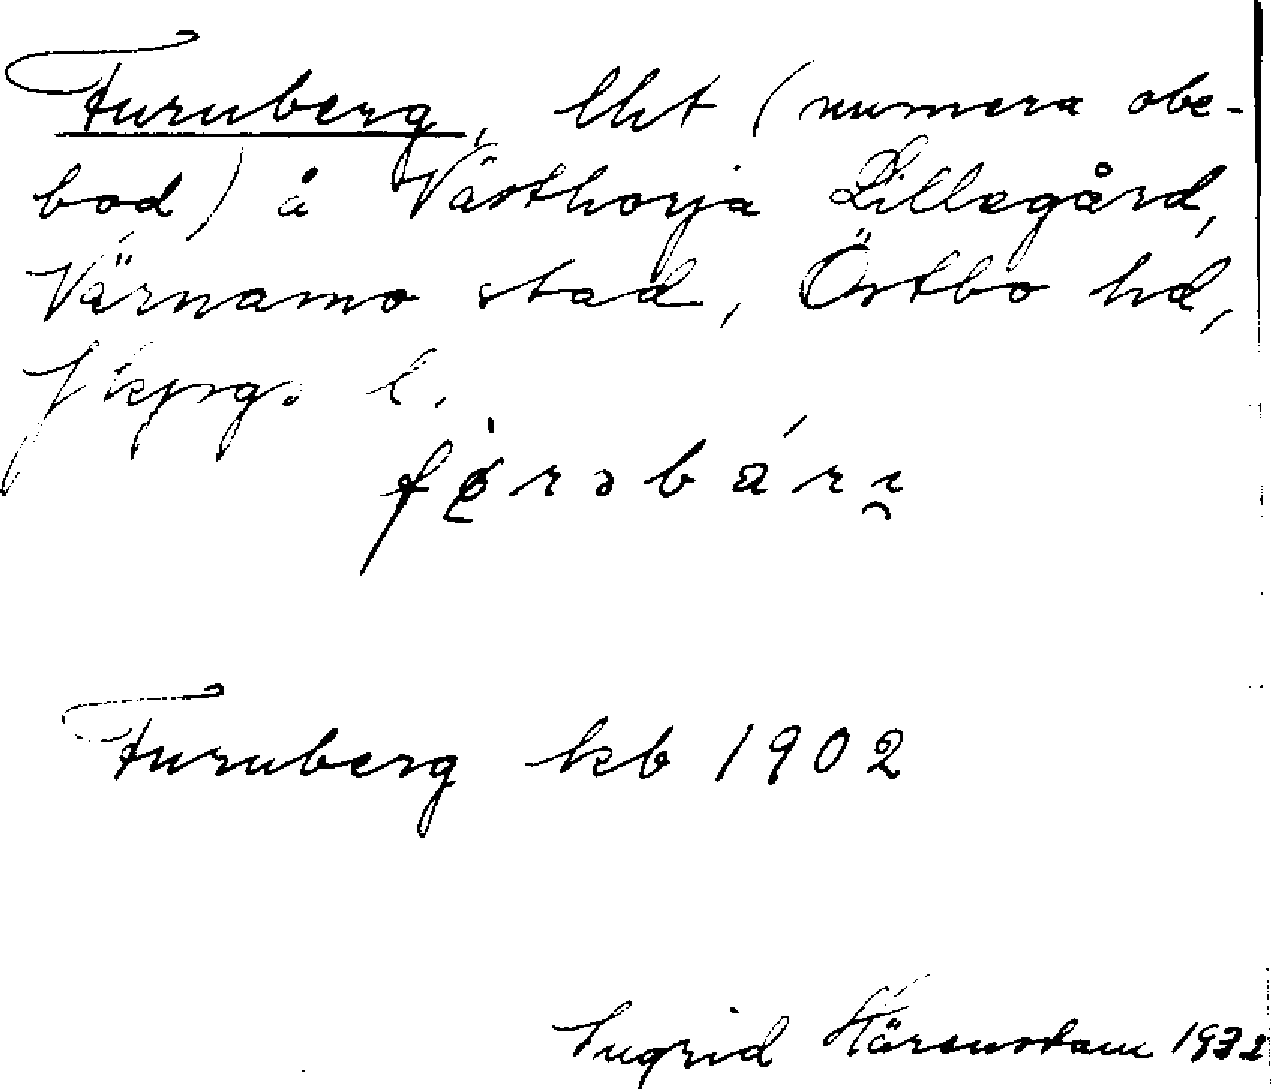 Furuberg, lht (numera obe-
bod) å Västhorja Lillegård,
Värnamo stad, Östbo hd,
Jkpgs l.
Furuberg kb 1902
Ingrid Härenstam